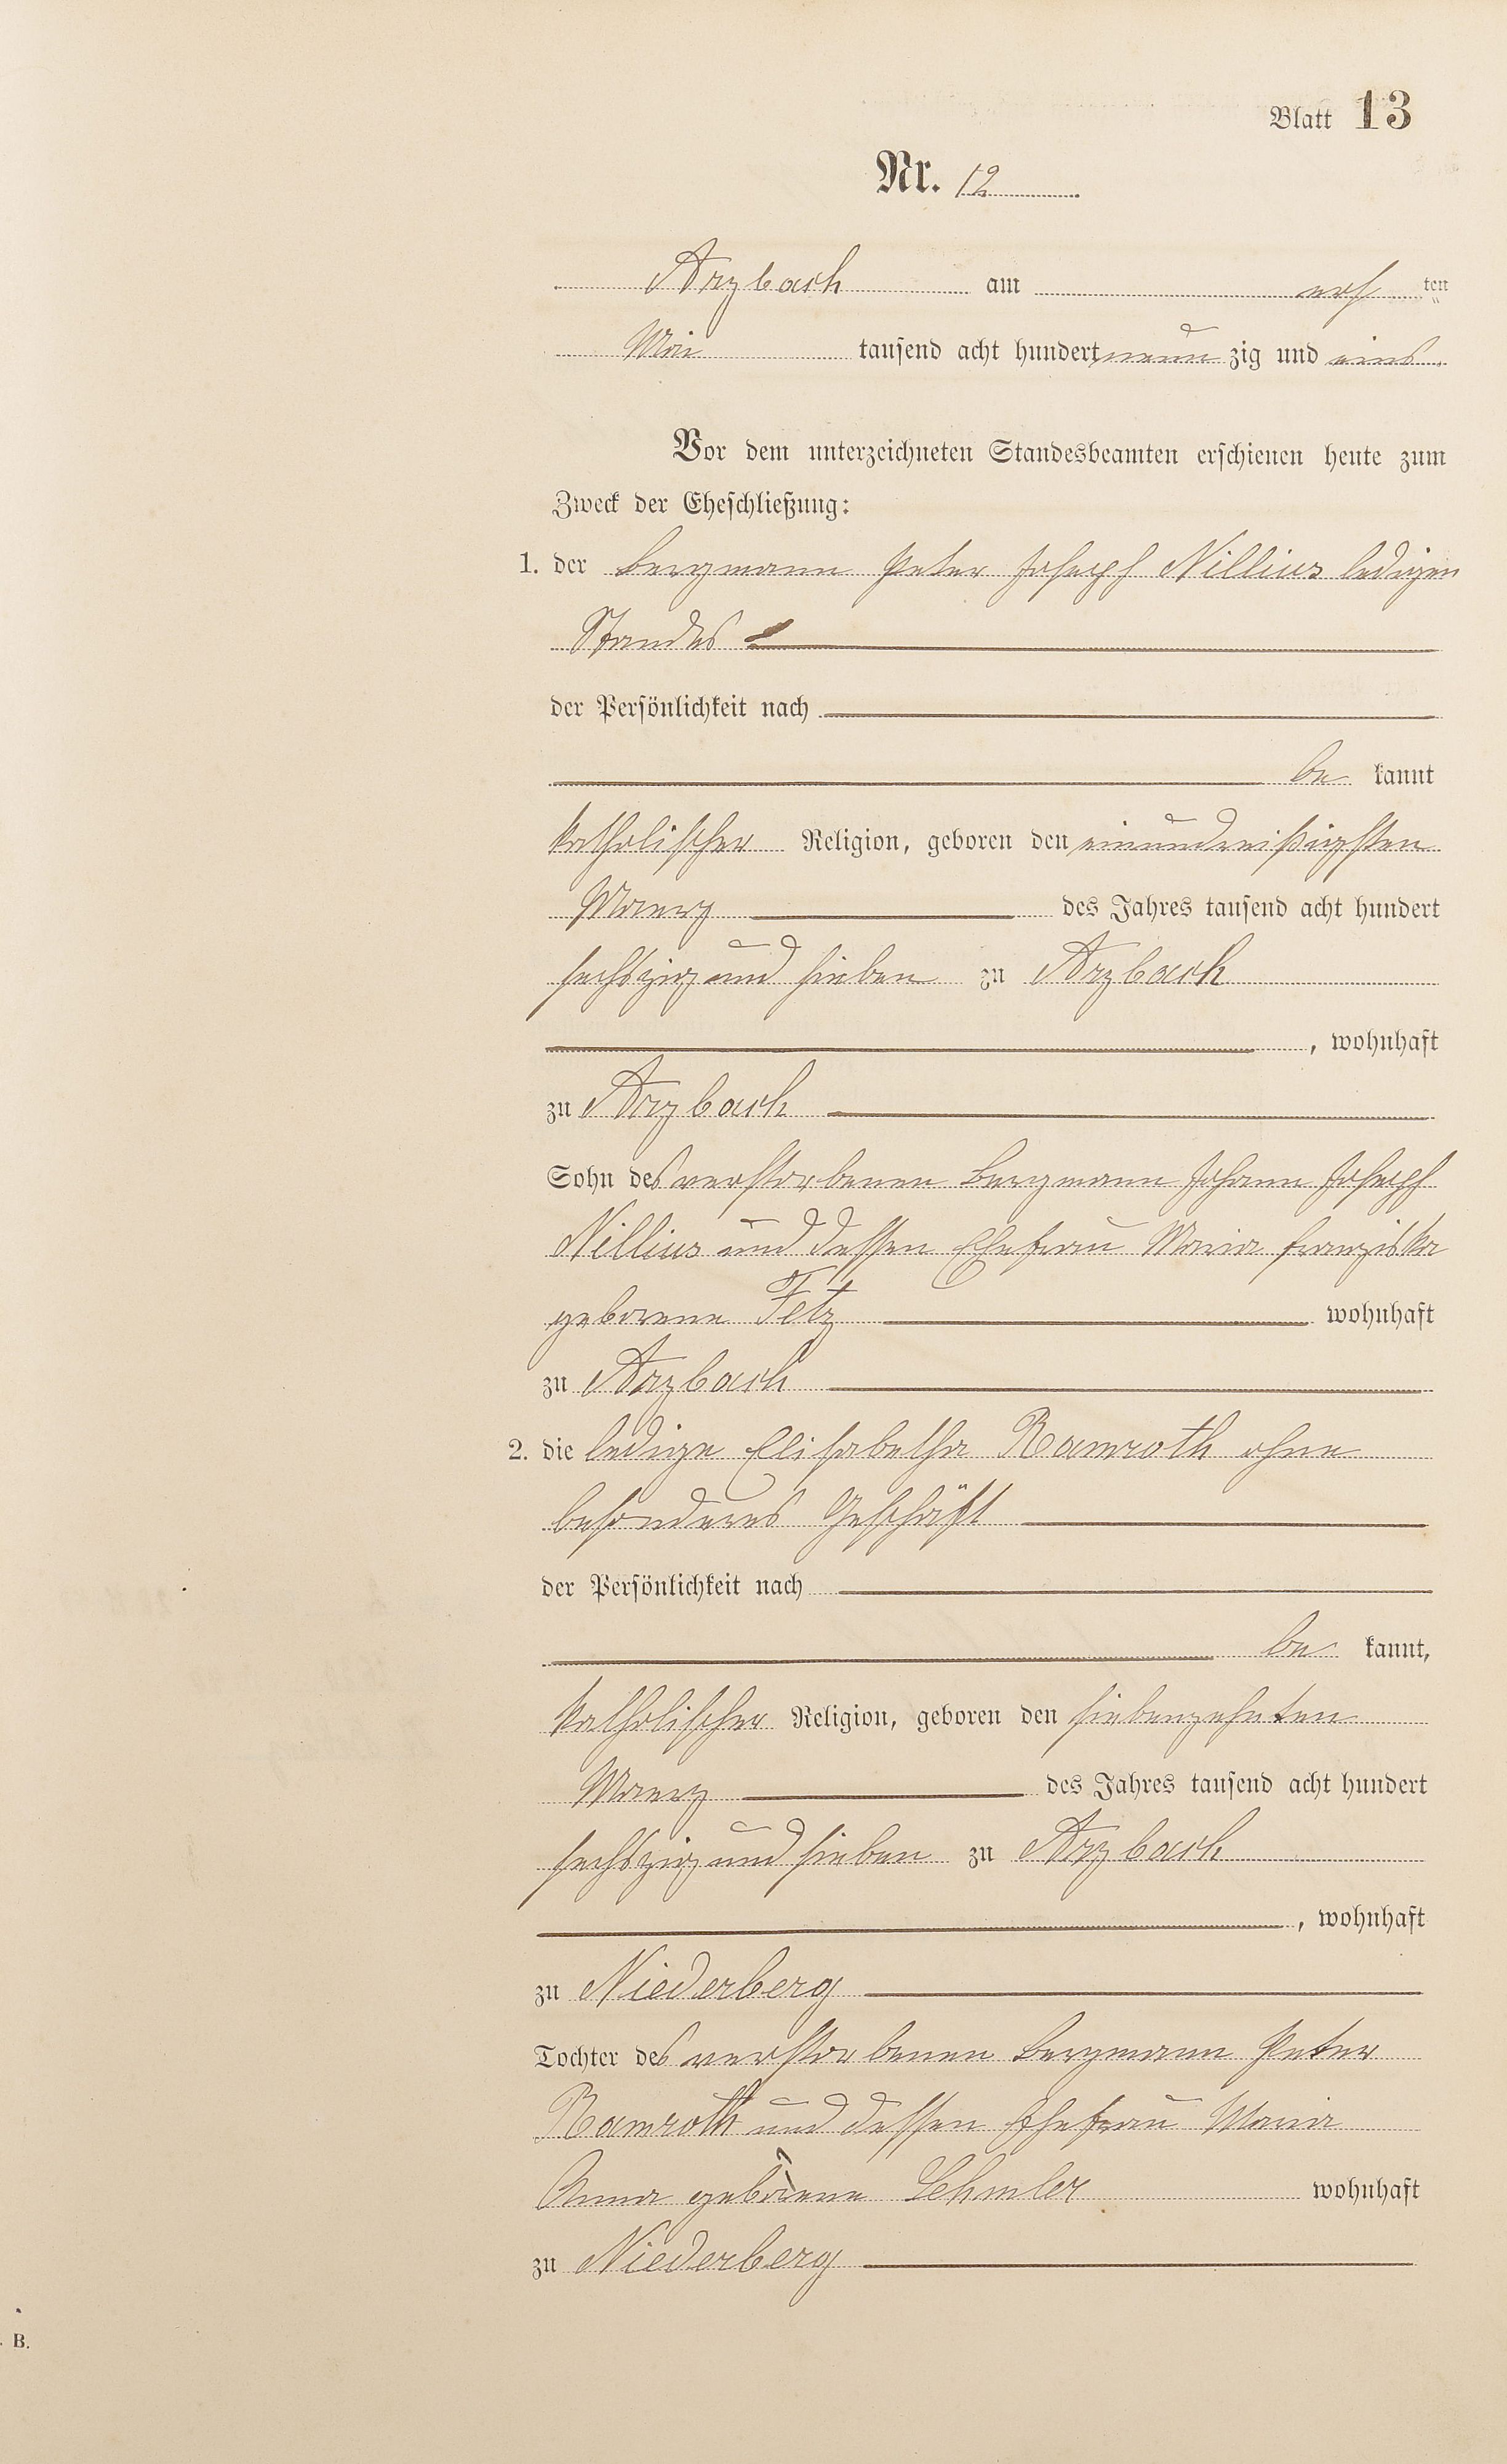 Blatt 13
Nr. 12
Arzbach am ersten
Mai tausend acht hundert neunzig und eins.
Vor dem unterzeichneten Standesbeamten erschienen heute zum
Zweck der Eheschließung:
1. der Bergmann Peter Joseph Nillius ledigen
Standes
der Persönlichkeit nach
be kannt
katholischer Religion, geboren den einundreißigsten
Maerz des Jahres tausend acht hundert
sechszig und sieben zu Arzbach
, wohnhaft
zu Arzbach
Sohn des verstorbenen Bergmann Johann Joseph
Nillius und dessen Ehefrau Maria Franziska
geborene Fetz wohnhaft
zu Arzbach
2. die ledige Elisabetha Ramroth ohne
besonderes Geschäft
der Persönlichkeit nach
be kannt,
katholischer Religion, geboren den siebenzehnten
Maerz des Jahres tausend acht hundert
sechszig und sieben zu Arzbach
, wohnhaft
zu Niederberg
Tochter des verstorbenen Bergmann Peter
Ramroth und dessen Ehefrau Maria
Anna geborene Lehmler wohnhaft
zu Niederberg
B.